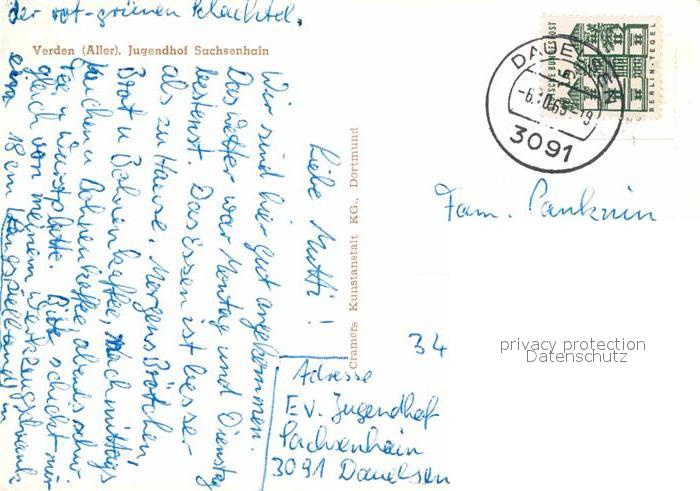 Verden (Aller). Jugendhof Sachsenhain
Liebe Mutti!
Wir sind hier gut angekommen.
Das Wetter war Montag und Dienstag
bestens. Das Essen ist besser
als zu Hause. Morgens Brötchen,
Brot u Bohnenkaffee, Nachmittags
Kuchen u Bohnenkaffee, abends
Tee u Wurstplatte. Bitte schickt mir
gleich von meinem Werkzeugschrank
ein 18 cm in
der rot-grünen Schachtel.
Adresse
Ev. Jugendhof
Sachsenhain
3091 Dauelsen
Cramers Kunstanstalt KG., Dortmund
DAUELSEN
3091
DEUTSCHE BUNDESPOST
BERLIN-TEGEL
Fam. Panknin
34
privacy protection
Datenschutz